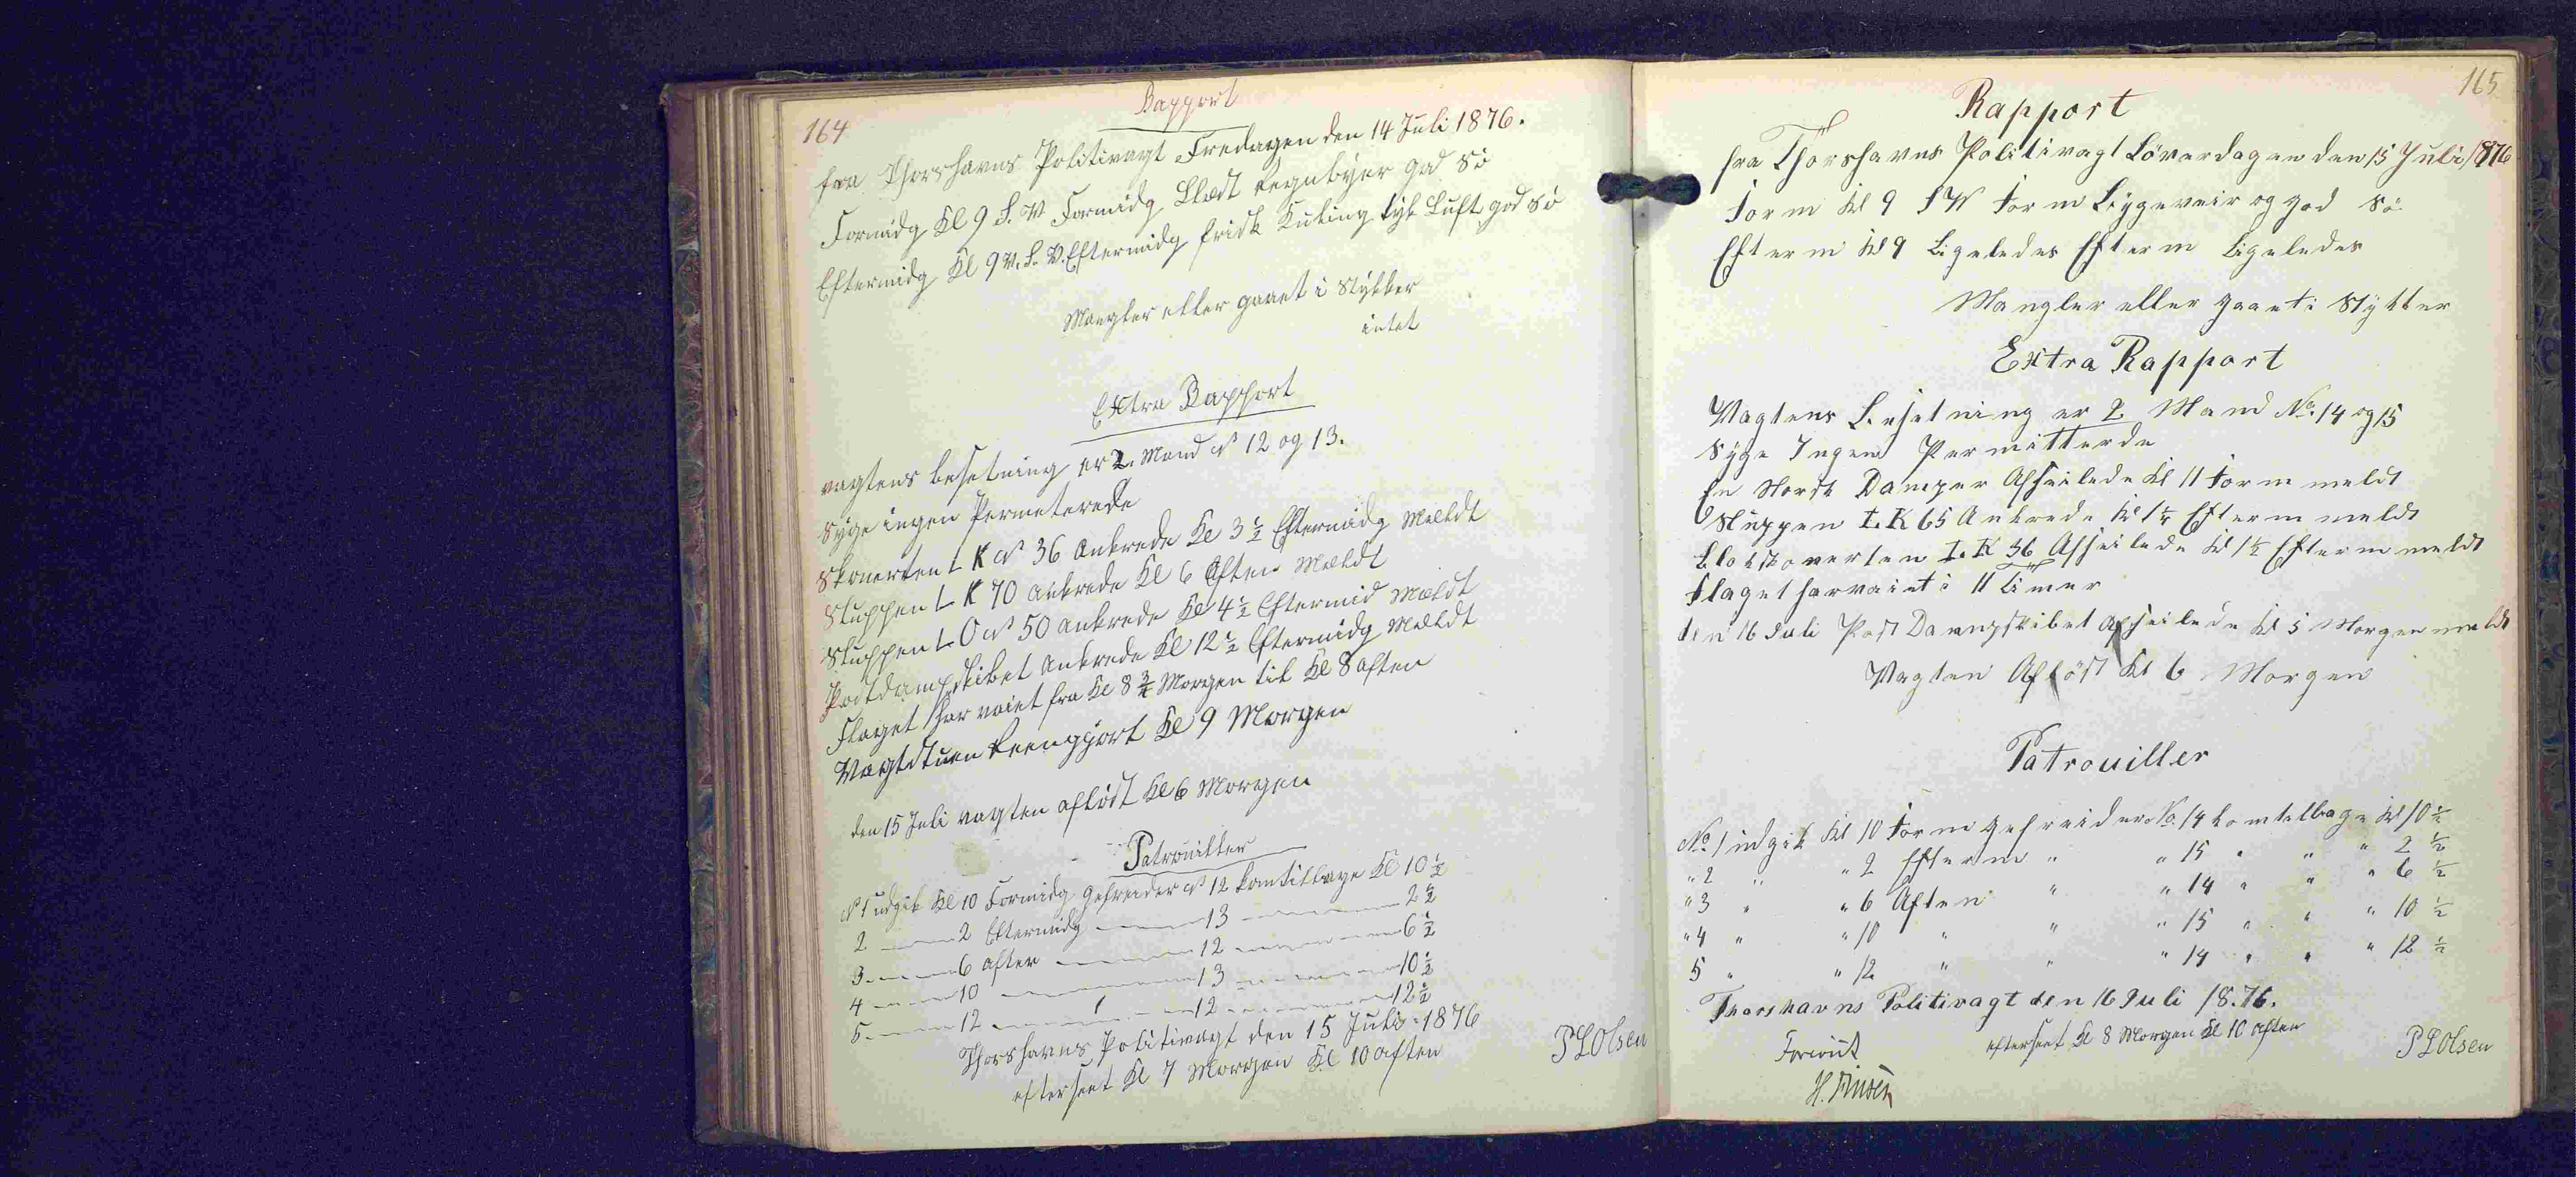 164
Rapport
fra Thorshavns Politivagt Fredagen den 14 Juli 1876.
Formidg Kl 9 S. V Formidg Blæst Regnbyer god Sö
Eftermidg Kl 9 V. S. V. Eftermidg frisk Kuling tyk Luft god Sö
Mangler eller gaaet i Stykker
intet
Extra Rapport
vagtens besetning er 2. Mand No 12 og 13.
Syge ingen Permeterede
Skonerten L K No 36 Ankrede Kl 3 1/2 Eftermidg Meldt
Sluppen L K 70 ankrede Kl 6 Aften Meldt
Sluppen L O No 50 ankrede Kl 4 1/2 Eftermid Meldt
Postdampskibet Ankrede Kl 12 1/2 Eftermidg Meldt
Flaget har vaiet fra Kl 8 3/4 Morgen til Kl 8 aften
Vagtstuen Reengjort Kl 9 Morgen
den 15 Juli vagten aflöst Kl 6 Morgen
Patrouiller
No 1 udgik Kl 10 Formidg Gefreider No 12 kom tilbage Kl 10 1/2
2 — 2 Eftermidg — 13 — 2 1/2
3 — 6 aften — 12 — 6 1/2
4 — 10 — 13 — 10 1/2
5 — 12 — 12 — 12 1/2
Thorshavns Politivagt den 15 Juli 1876
efterseet Kl 7 Morgen Kl 10 aften PLOlsen
165
Rapport
fra Thorshavns Politivagt Löverdagen den 15 Juli 1876
Form Kl 9 S W Form Ligeveir og god Sö
Efterm Kl 9 Ligeledes Efterm Ligeledes
Mangler eller gaaet i Stykker
Extra Rapport
Vagtens Besetning er 2 Mand No. 14 og 15
Syge Ingen Permitterde
En Norsk Damper Afseilede Kl 11 Form meldt
Sluppen L. K 65 Ankrede Kl 1 1/4 Efterm meldt
Skonerten L. K 36 Afseilede Kl 1 1/2 Efterm meldt
Flaget har vaiet i 11 Timer
den 16 Juli Post Dampskibet afseilede Kl 5 Morgen meldt
Vagten Aflöst Kl 6 Morgen
Patrouiller
No. 1 udgik Kl 10 Form Gefreider No. 14 kom tilbage Kl 10 1/2
" 2 " " 2 Efterm " " 15 " " " 2 1/2
" 3 " " 6 Aften " " 14 " " " 6 1/2
" 4 " " 10 " " " 15 " " " 10 1/2
5 " " 12 " " " 14 " " " 12 1/2
Thorshavns Politivagt den 16 Juli 1876.
Forevist efterseet Kl 8 Morgen Kl 10 aften PLOlsen
H. Finsen